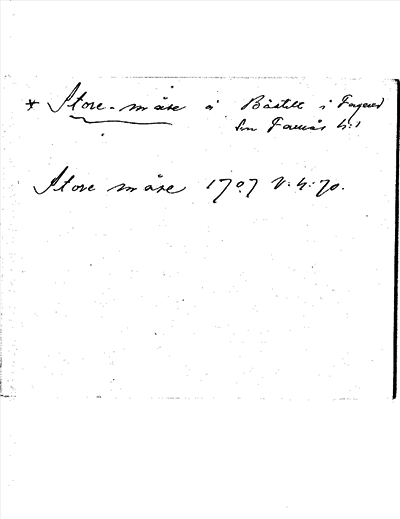 * Store-måse å Båstell i Fagered
sn Faurås h:d
Store måse 1707 V:4:70.